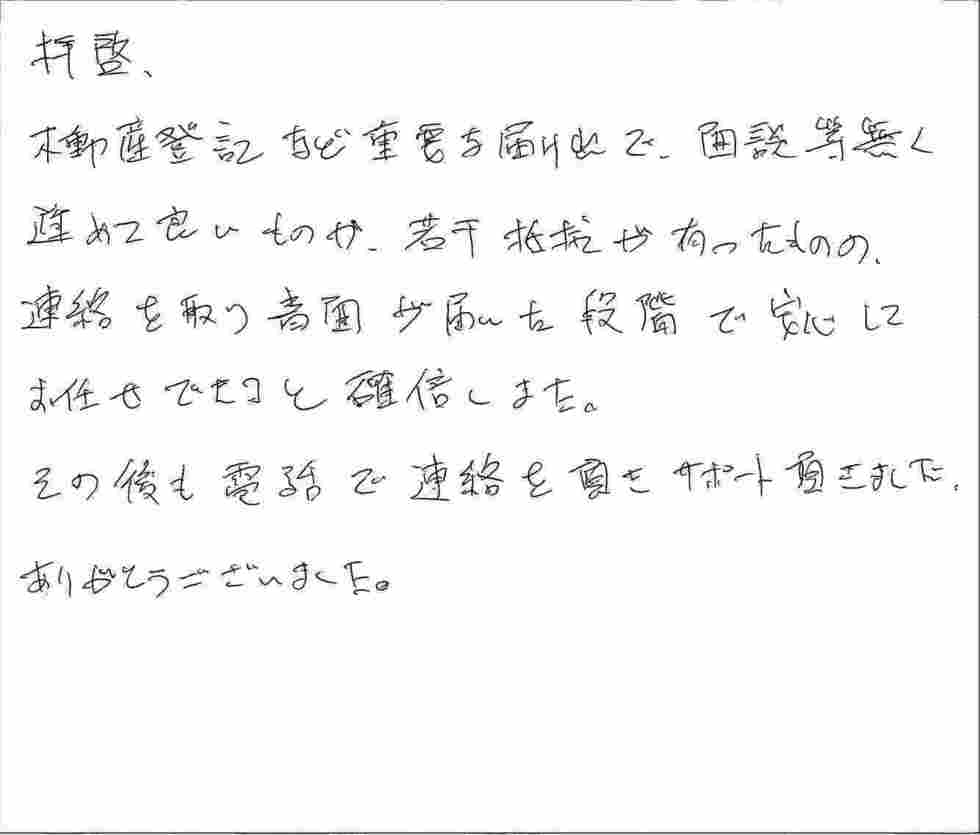 拝啓、
不動産登記など重要な届け出で、面談等無く
進めて良いものか、若干抵抗が有ったものの、
連絡を取り書面が届いた段階で安心して
お任せできると確信しました。
その後も電話で連絡を頂きサポート頂きました。
ありがとうございました。